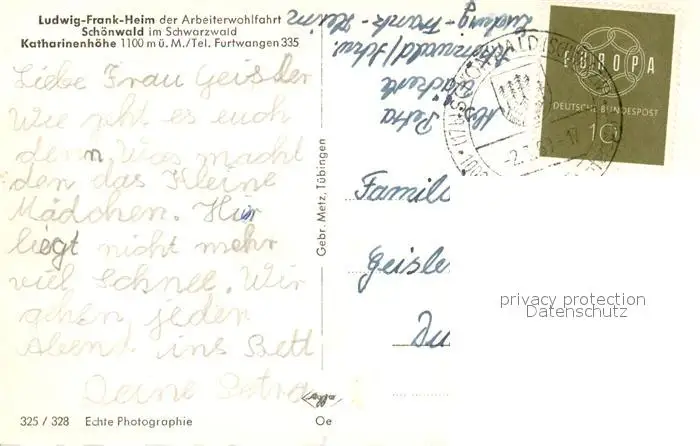 Ludwig-Frank-Heim der Arbeiterwohlfahrt
Schönwald im Schwarzwald
Katharinenhöhe 1100 m ü. M./Tel. Furtwangen 335
Liebe Frau Geisler
Wie geht es euch
denn. Was macht
den das Kleine
Mädchen. Hir
liegt nicht mehr
viel Schnee. Wir
gehen jeden
Abend ins Bett
Deine Petra
325 / 328 Echte Photographie
Oe
Gebr. Metz, Tübingen
Abs
Petra
Schönwald/Schw.
Ludwig-Frank-Heim
EUROPA
DEUTSCHE BUNDESPOST
10
Familie
Geisle
Du
privacy protection
Datenschutz